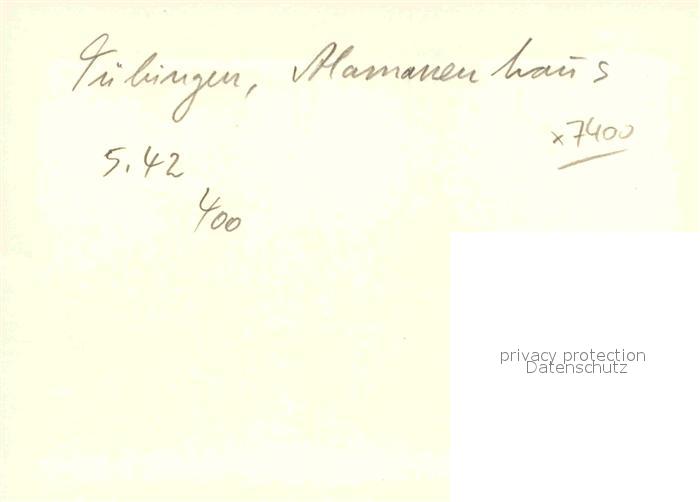 Tübingen, Alamannenhaus
x7400
5.42
400
privacy protection
Datenschutz